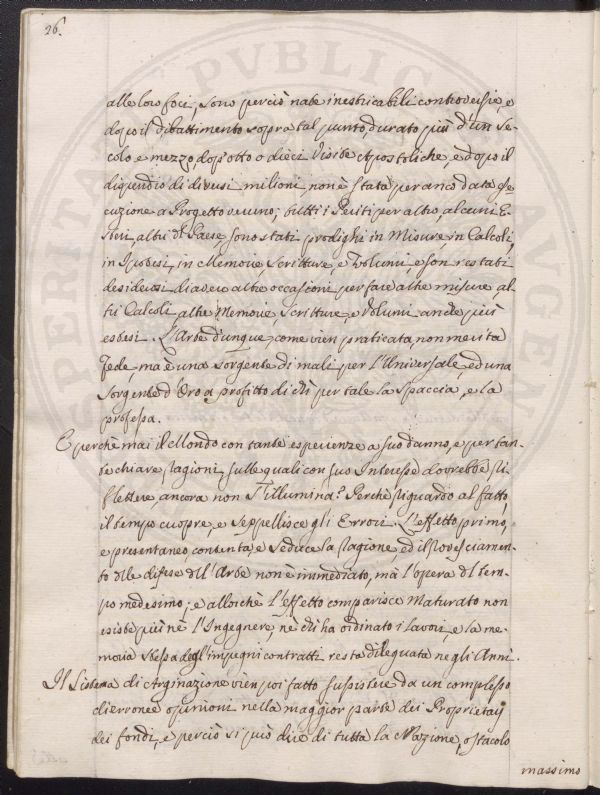 26.
alle loro foci, sono perciò nate inestricabili controversie, e
dopo il dibattimento sopra tal punto durato più d'un Se-
colo e mezzo, dopo otto o dieci Visite Apostoliche, e dopo il
dispendio di diversi milioni non è stata per anco data ese-
cuzione a Progetto veruno; tutti i Periti per altro, alcuni E-
steri, altri del Paese, sono stati prodighi in Misure, in Calcoli,
in Ipotesi, in Memorie, Scritture, e Volumi, e son restati
desiderosi di avere altre occasioni per fare altre misure, al-
tri Calcoli altre Memorie, Scritture, e Volumi anche più
estesi. L'Arte dunque come vien praticata non merita
fede, ma è una sorgente di mali per l'Universale, ed una
Sorgente d'Oro a profitto di chi per tale la spaccia, e la
professa.
E perchè mai il Mondo con tante esperienze a suo danno, e per tan-
te chiare ragioni, sulle quali con suo Interesse dovrebbe ri-
flettere, ancora non s'illumina? Perchè riguardo al fatto,
il tempo cuopre, e seppellisce gli Errori. L'effetto primo,
e presentaneo contenta, e seduce la ragione, ed il rovesciamen-
to delle difese dell'Arte non è immediato, mà l'opera del tem-
po medesimo; e allorchè l'effetto comparisce maturato non
esiste più nè l'Ingegnere, nè chi ha ordinato i lavori, e la me-
moria stessa degl'impegni contratti resta dileguata negli Anni.
Il Sistema di Arginazione vien poi fatto sussistere da un complesso
di erronee opinioni nella maggior parte dei Proprietarj
dei fondi, e perciò si può dire di tutta la Nazione, ostacolo
massimo
SPERITAS PVBLICA AVGEN